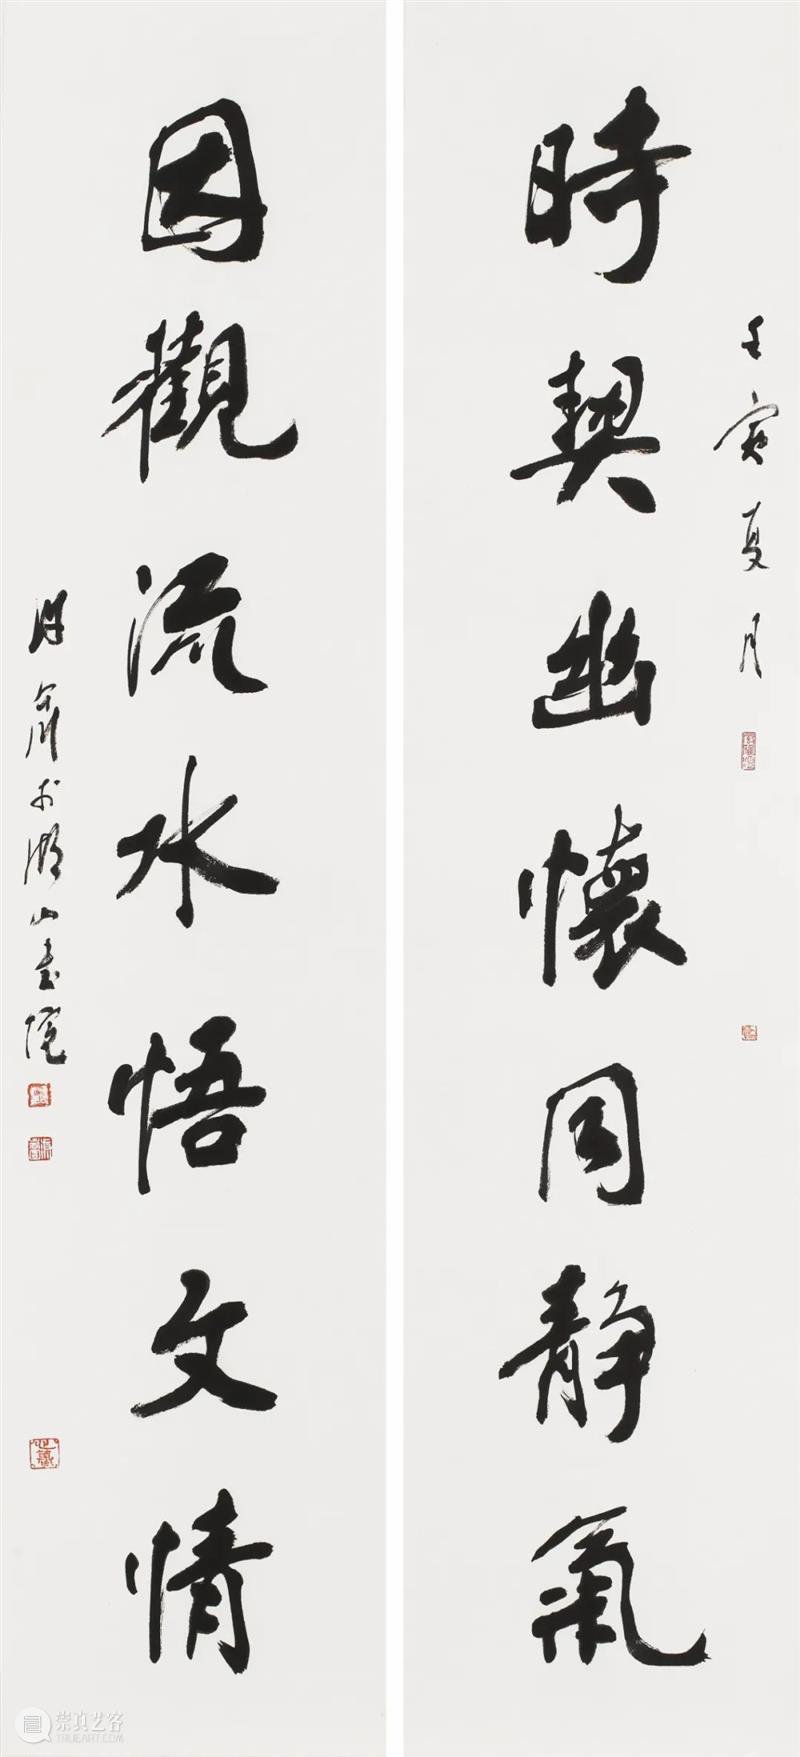 壬寅夏月
時契幽懷同静氣
因觀流水悟文情
於湖山書院
崇真艺客
TRUEART.COM